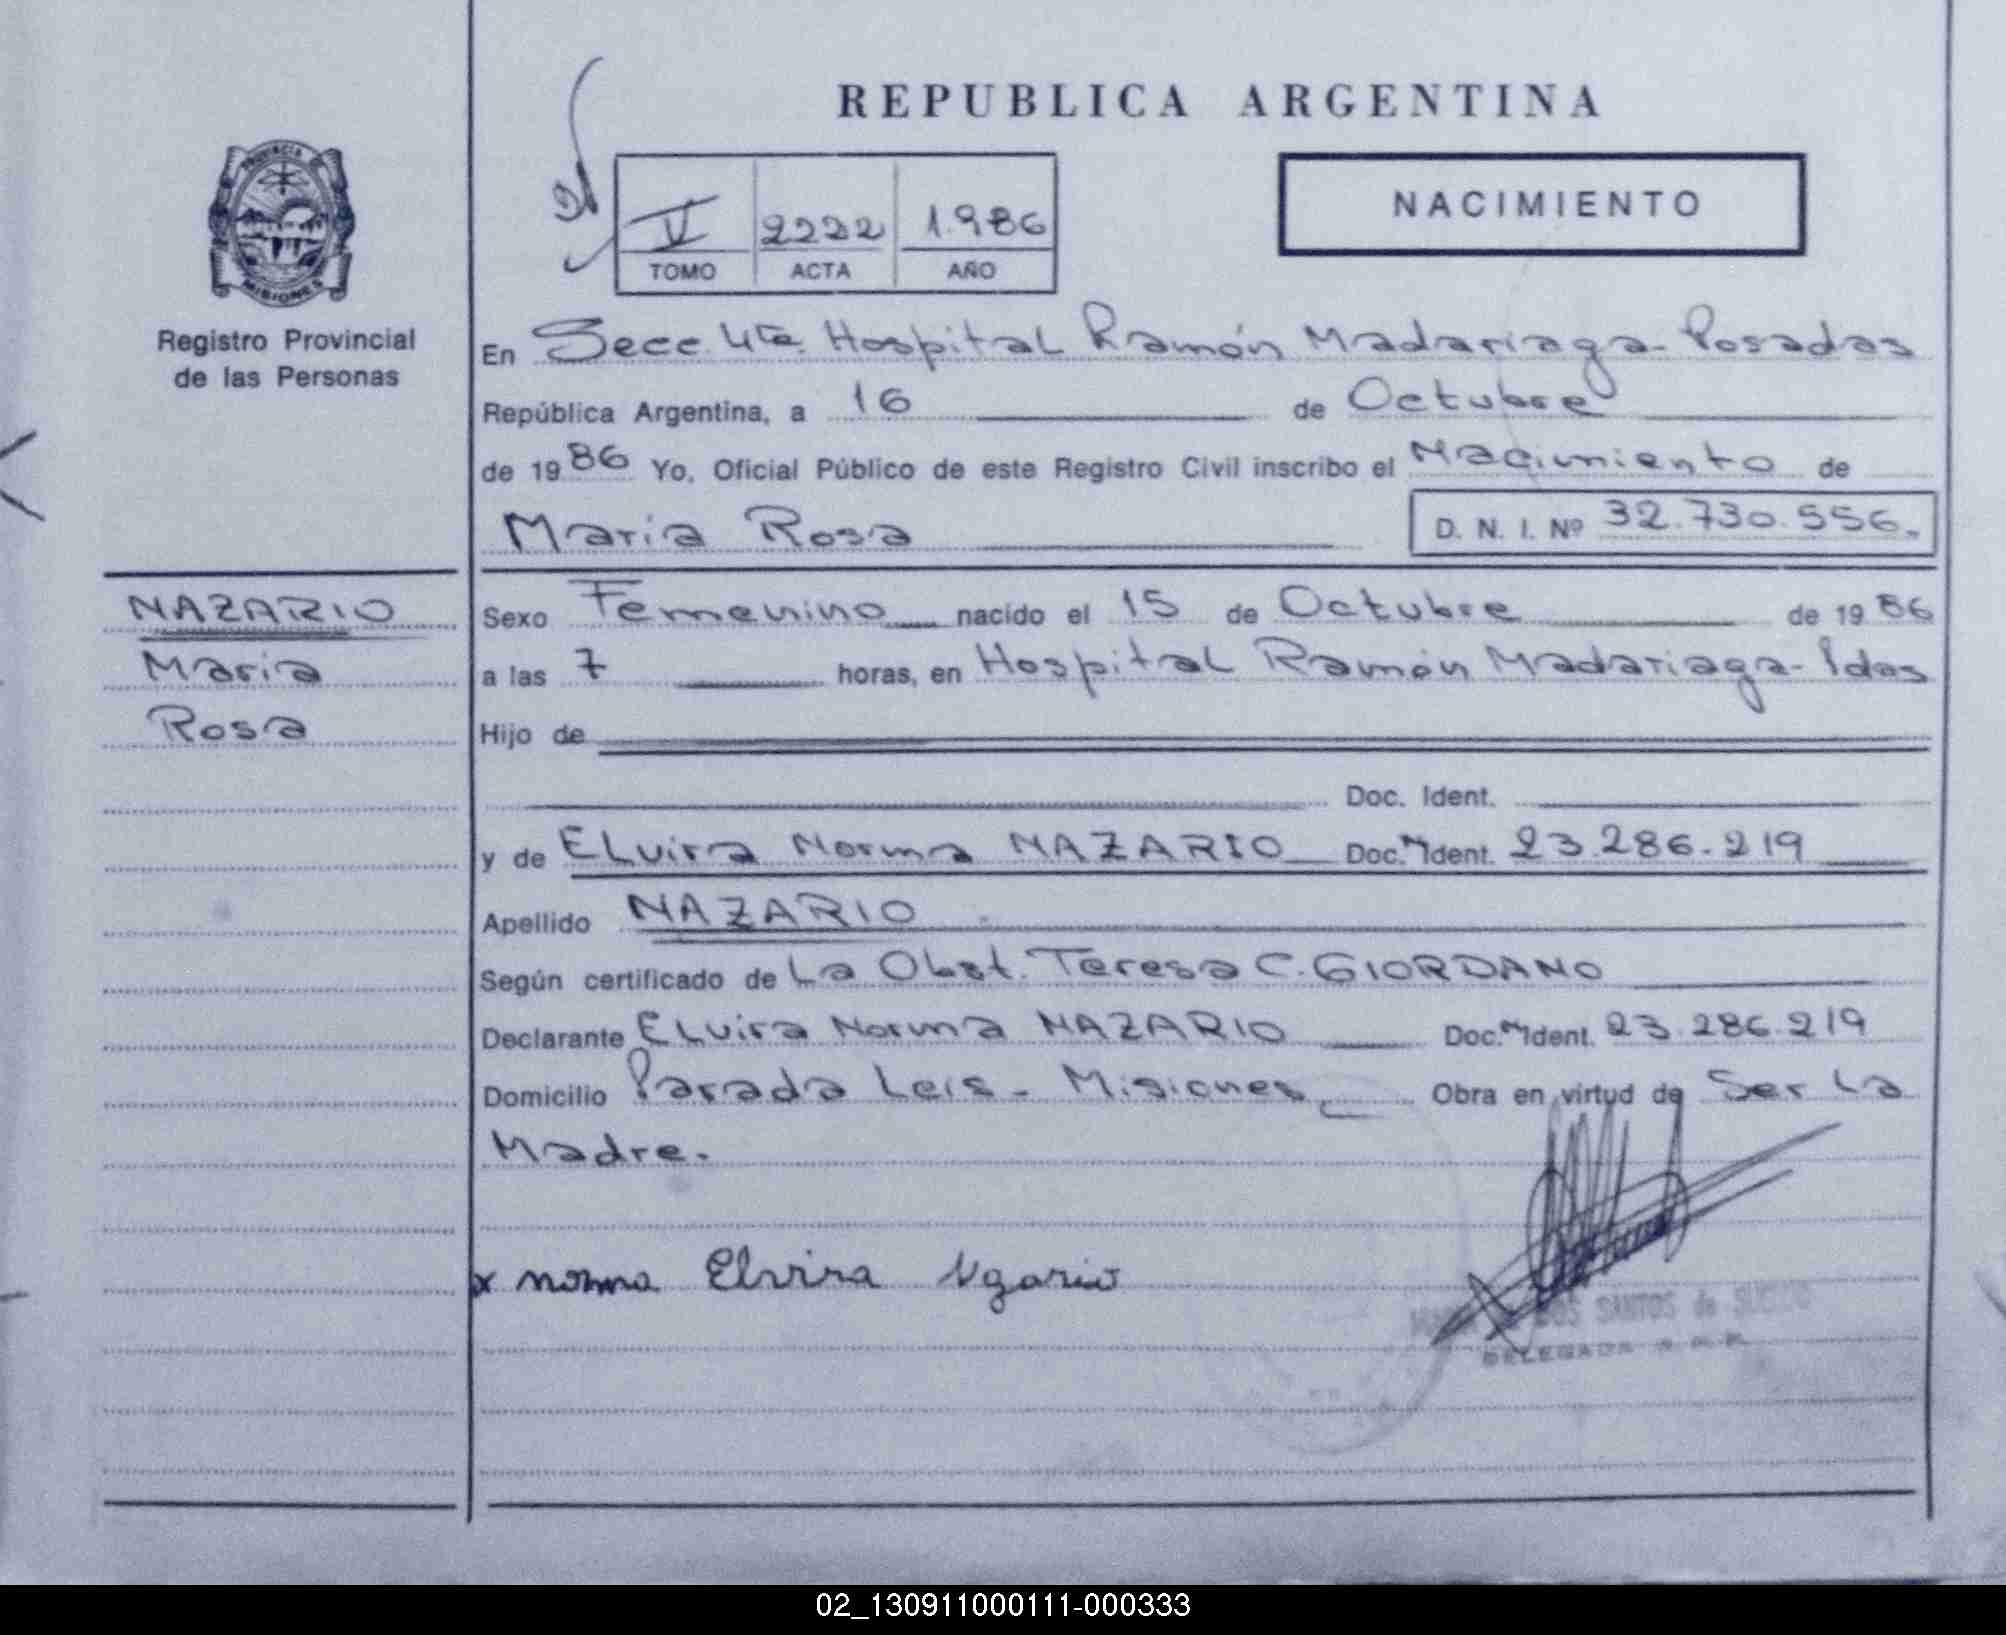 REPUBLICA ARGENTINA
NACIMIENTO
V 2222 1.986
TOMO ACTA AÑO
PROVINCIA DE
MISIONES
Registro Provincial
de las Personas
En Secc. 4ta. Hospital Ramón Madariaga - Posadas
República Argentina, a 16 de Octubre
de 1986 Yo, Oficial Público de este Registro Civil inscribo el Nacimiento de
Maria Rosa D. N. I. Nº 32.730.556.
NAZARIO
Maria
Rosa
Sexo Femenino nacido el 15 de Octubre de 1986
a las 7 horas, en Hospital Ramón Madariaga - Pdas
Hijo de
Doc. Ident.
y de ELvira Norma NAZARIO Doc. Ident. 23.286.219
Apellido NAZARIO
Según certificado de La Obst. Teresa C. GIORDANO
Declarante ELvira Norma NAZARIO Doc. Ident. 23.286.219
Domicilio Parada Leis - Misiones Obra en virtud de Ser La
Madre.
x norma Elvira
DOS SANTOS de
DELEGADA
02_130911000111-000333